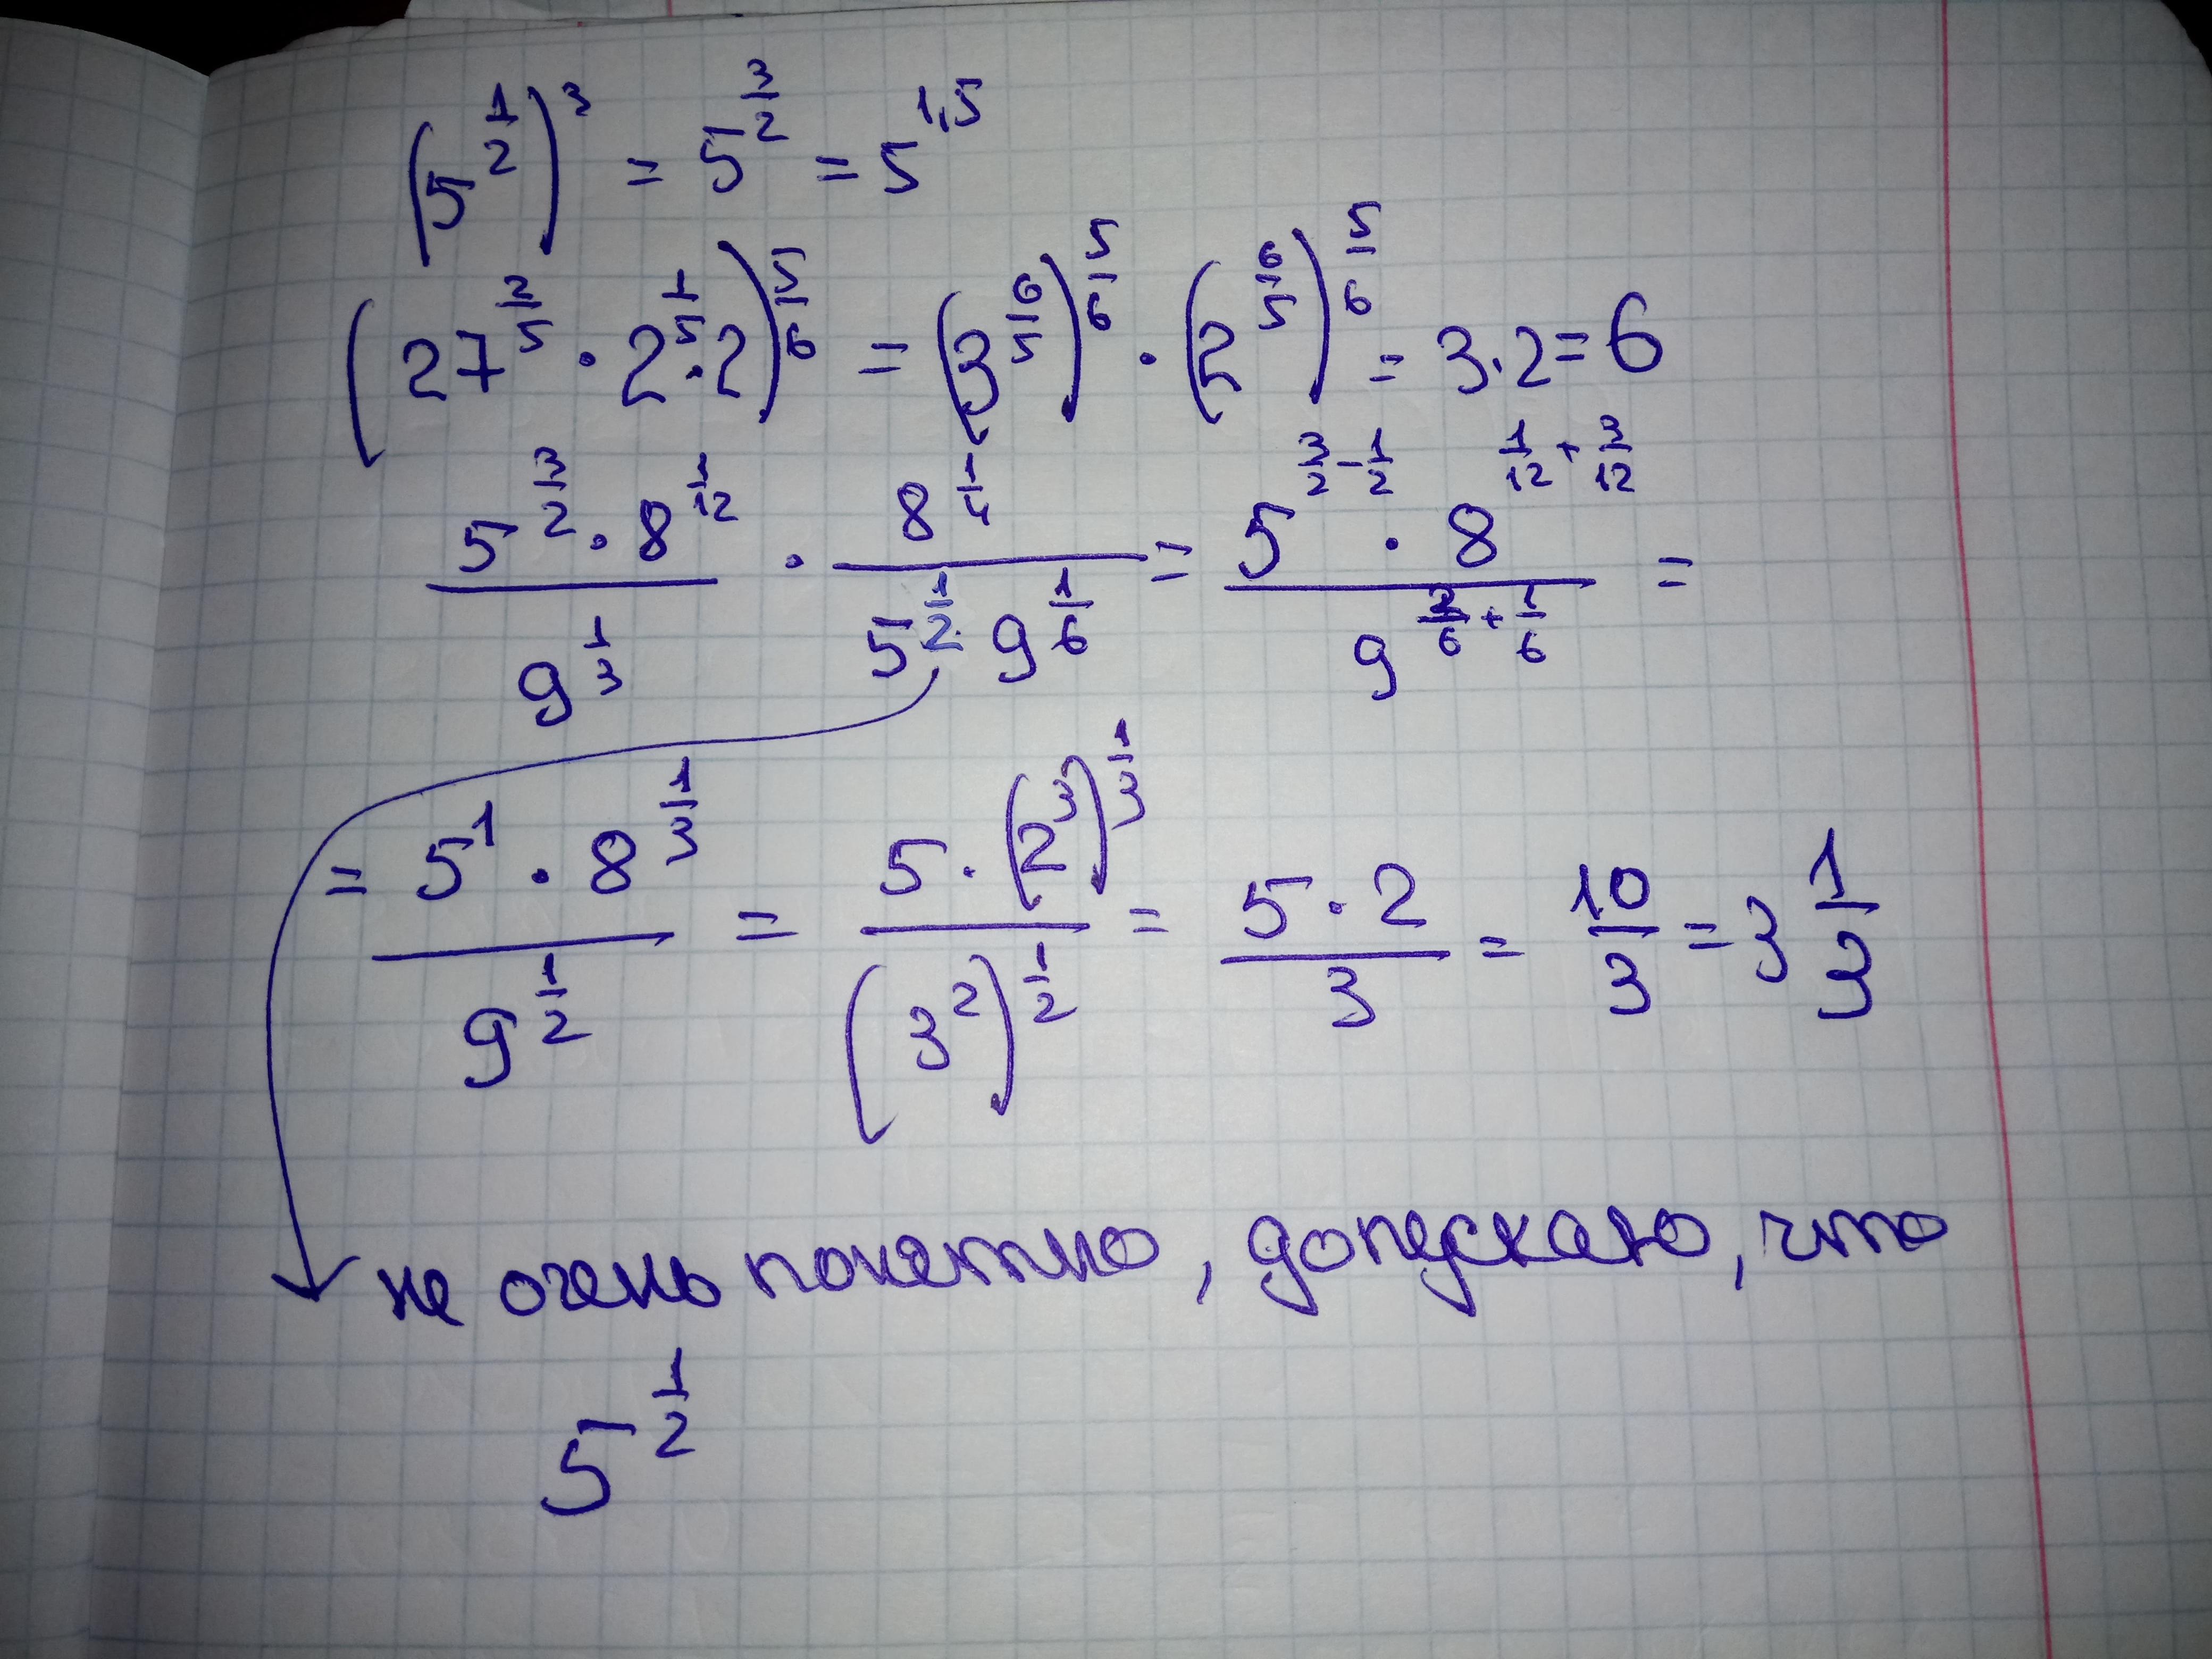 (5^{1/2})^3 = 5^{3/2} = 5^{1,5}
(27^{2/5} · 2^{1/5} · 2)^{5/6} = (3^{6/5})^{5/6} · (2^{6/5})^{5/6} = 3 · 2 = 6
\frac{5^{3/2} · 8^{1/12}}{9^{1/3}} · \frac{8^{1/4}}{5^{1/2} · 9^{1/6}} = \frac{5^{3/2 - 1/2} · 8^{1/12 + 3/12}}{9^{2/6 + 1/6}} =
= \frac{5^1 · 8^{1/3}}{9^{1/2}} = \frac{5 · (2^3)^{1/3}}{(3^2)^{1/2}} = \frac{5 · 2}{3} = \frac{10}{3} = 3\frac{1}{3}
не очень понятно, допускаю, что
5^{1/2}